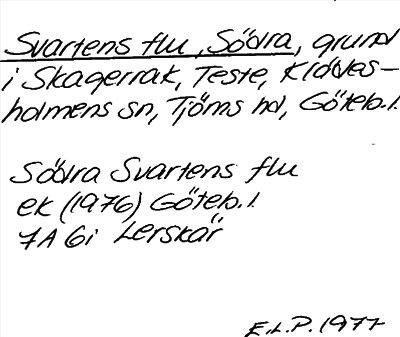 Svartens flu, Södra, grund
i Skagerrak, Teste, Klädes-
holmens sn, Tjörns hd, Göteb.l.
Södra Svartens flu
ek (1976) Göteb.l.
7A 6i Lerskär
E.L.P. 1977